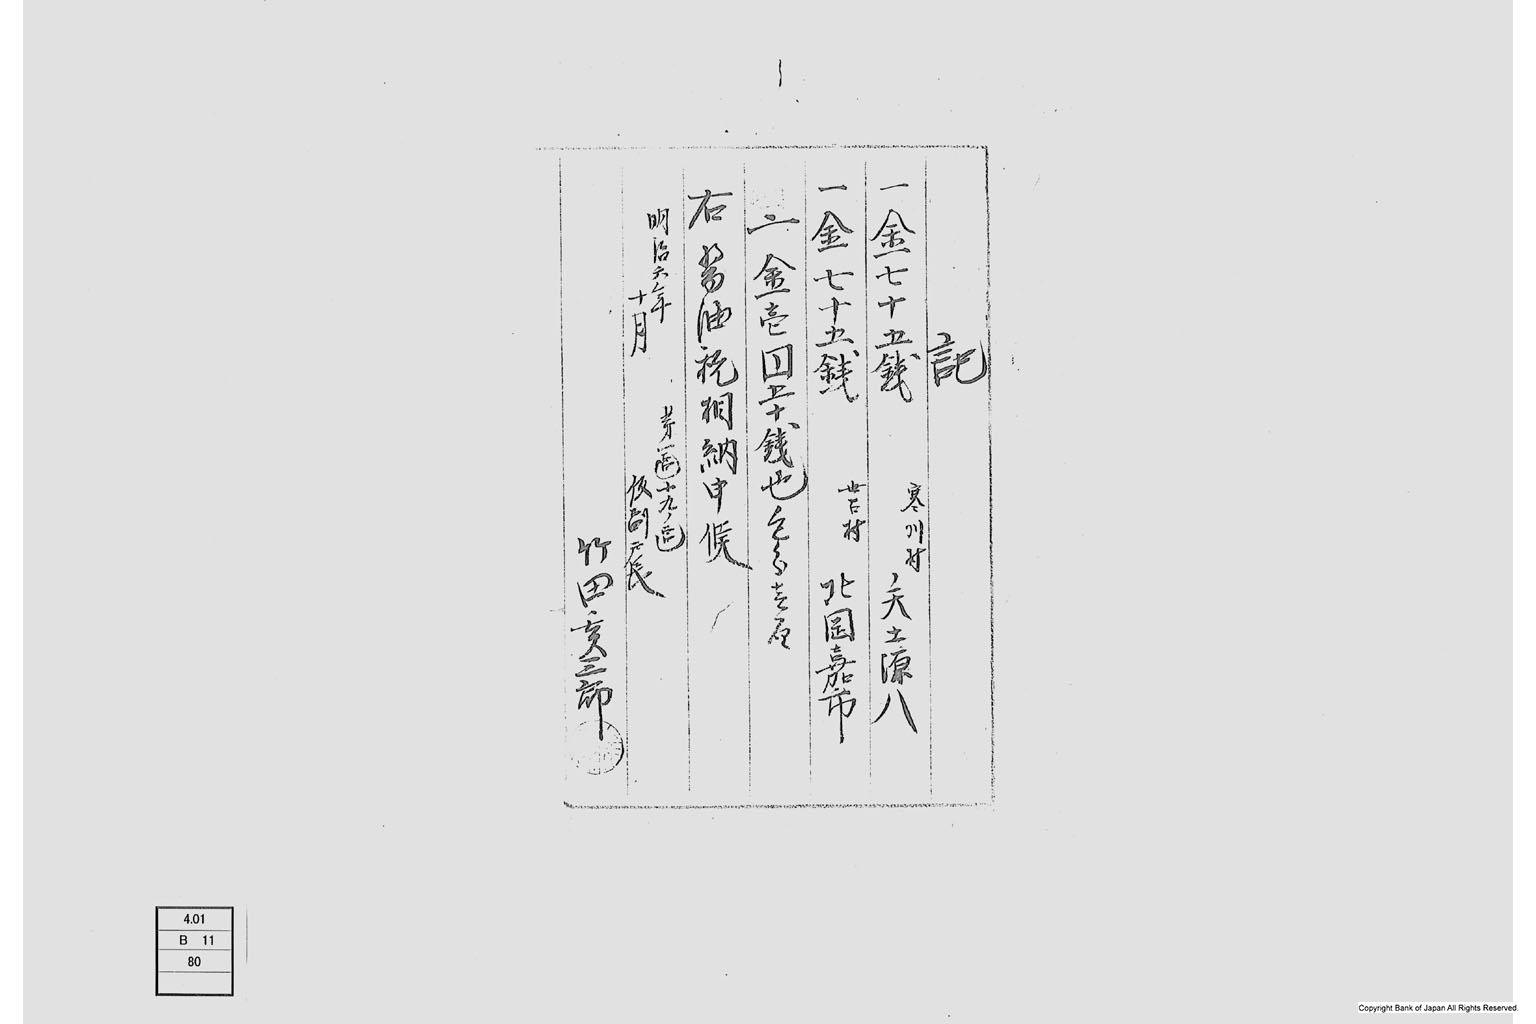 記
一金七十五銭 寒川村 矢土源八
一金七十五銭 苔村 北岡嘉市
〆金壱円五十銭也
右醤油税相納申候
明治六年
十月
第一大区十九小区
仮副戸長
竹田亥三郎
4.01
B 11
80
Copyright Bank of Japan All Rights Reserved.